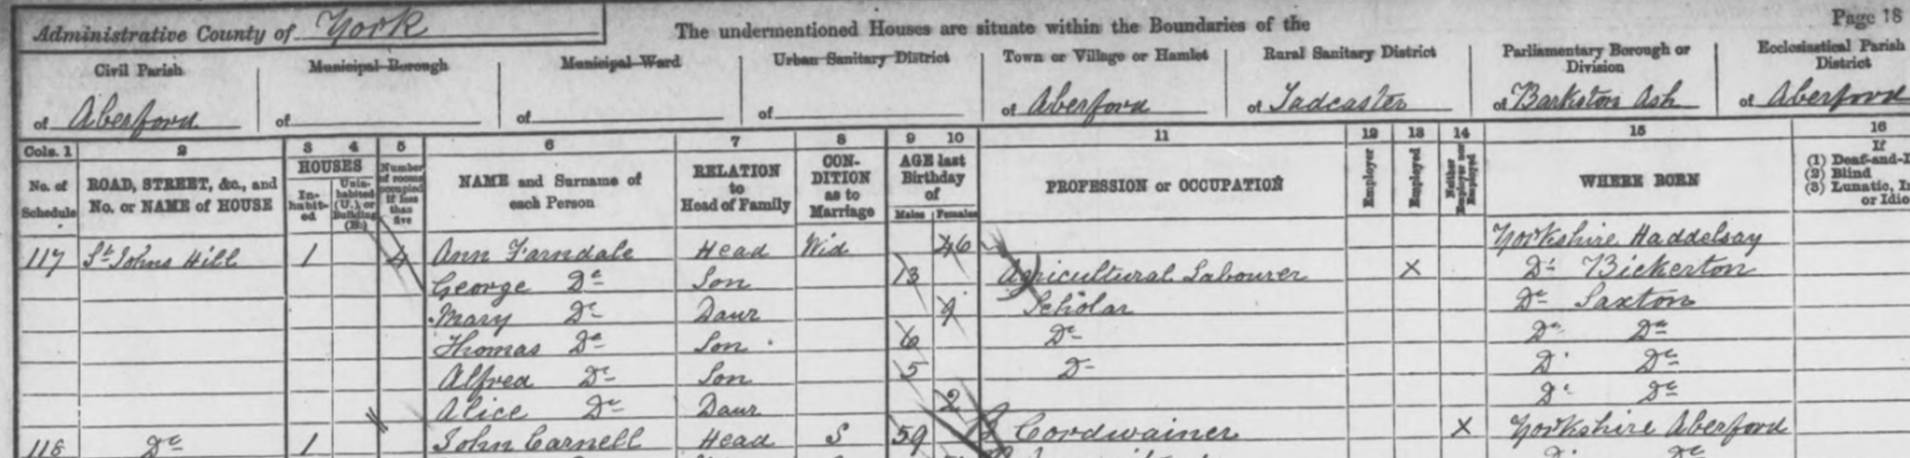 Administrative County of York The undermentioned Houses are situate within the Boundaries of the Page 18
Civil Parish Municipal Borough Municipal Ward Urban Sanitary District Town or Village or Hamlet Rural Sanitary District Parliamentary Borough or Division Ecclesiastical Parish District
of Aberford of of of of Aberford of Tadcaster of Barkston Ash of Aberford
Cols. 1 2 3 4 5 6 7 8 9 10 11 12 13 14 15 16
No. of Schedule ROAD, STREET, &c., and No. or NAME of HOUSE HOUSES In-habit-ed Unin-habited (U.) or Building (B.) Number of rooms occupied if less than five NAME and Surname of each Person RELATION to Head of Family CON-DITION as to Marriage AGE last Birthday of Males Females PROFESSION or OCCUPATION Employer Employed Neither Employer nor Employed WHERE BORN If (1) Deaf-and-D (2) Blind (3) Lunatic, I or Idio
117 St Johns Hill 1 4 Ann Farndale Head Wid 46 Yorkshire Haddelsay
George Do Son 13 Agricultural Labourer X Do Bickerton
Mary Do Daur 9 Scholar Do Saxton
Thomas Do Son 6 Do Do Do
Alfred Do Son 5 Do Do Do
Alice Do Daur 2 Do Do
118 Do 1 John Carnell Head S 59 Cordwainer X Yorkshire Aberford